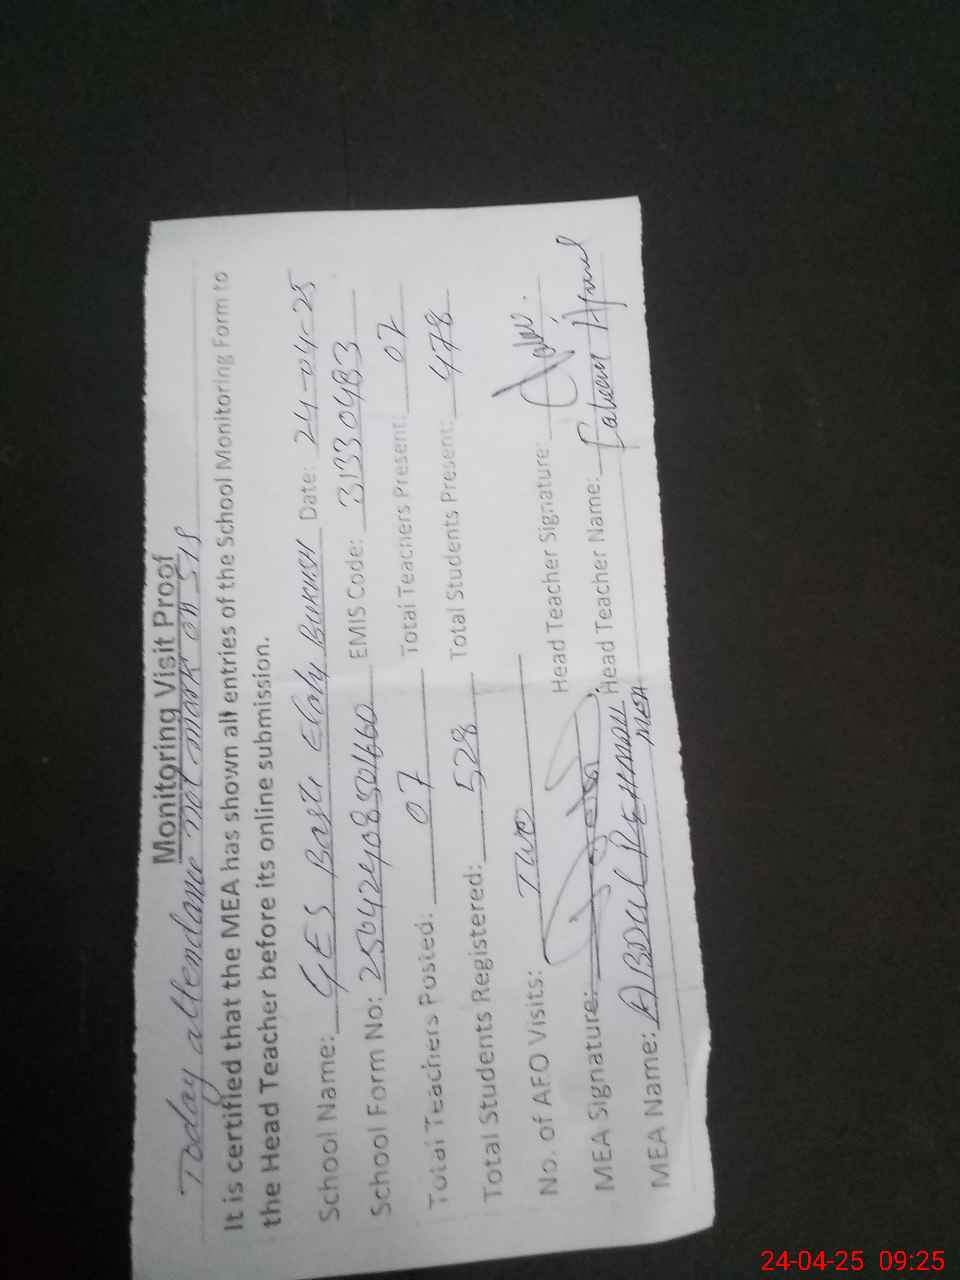 Monitoring Visit Proof
Today attendance not mark on SIS
It is certified that the MEA has shown all entries of the School Monitoring Form to
the Head Teacher before its online submission.
School Name: GES Basti Date: 24-04-25
School Form No: EMIS Code: 31330483
Total Teachers Posted: 07 Total Teachers Present: 07
Total Students Registered: 528 Total Students Present: 478
No. of AFO Visits: Two
MEA Signature: Head Teacher Signature:
MEA Name: ABDUL REHMAN MEA Head Teacher Name:
24-04-25 09:25